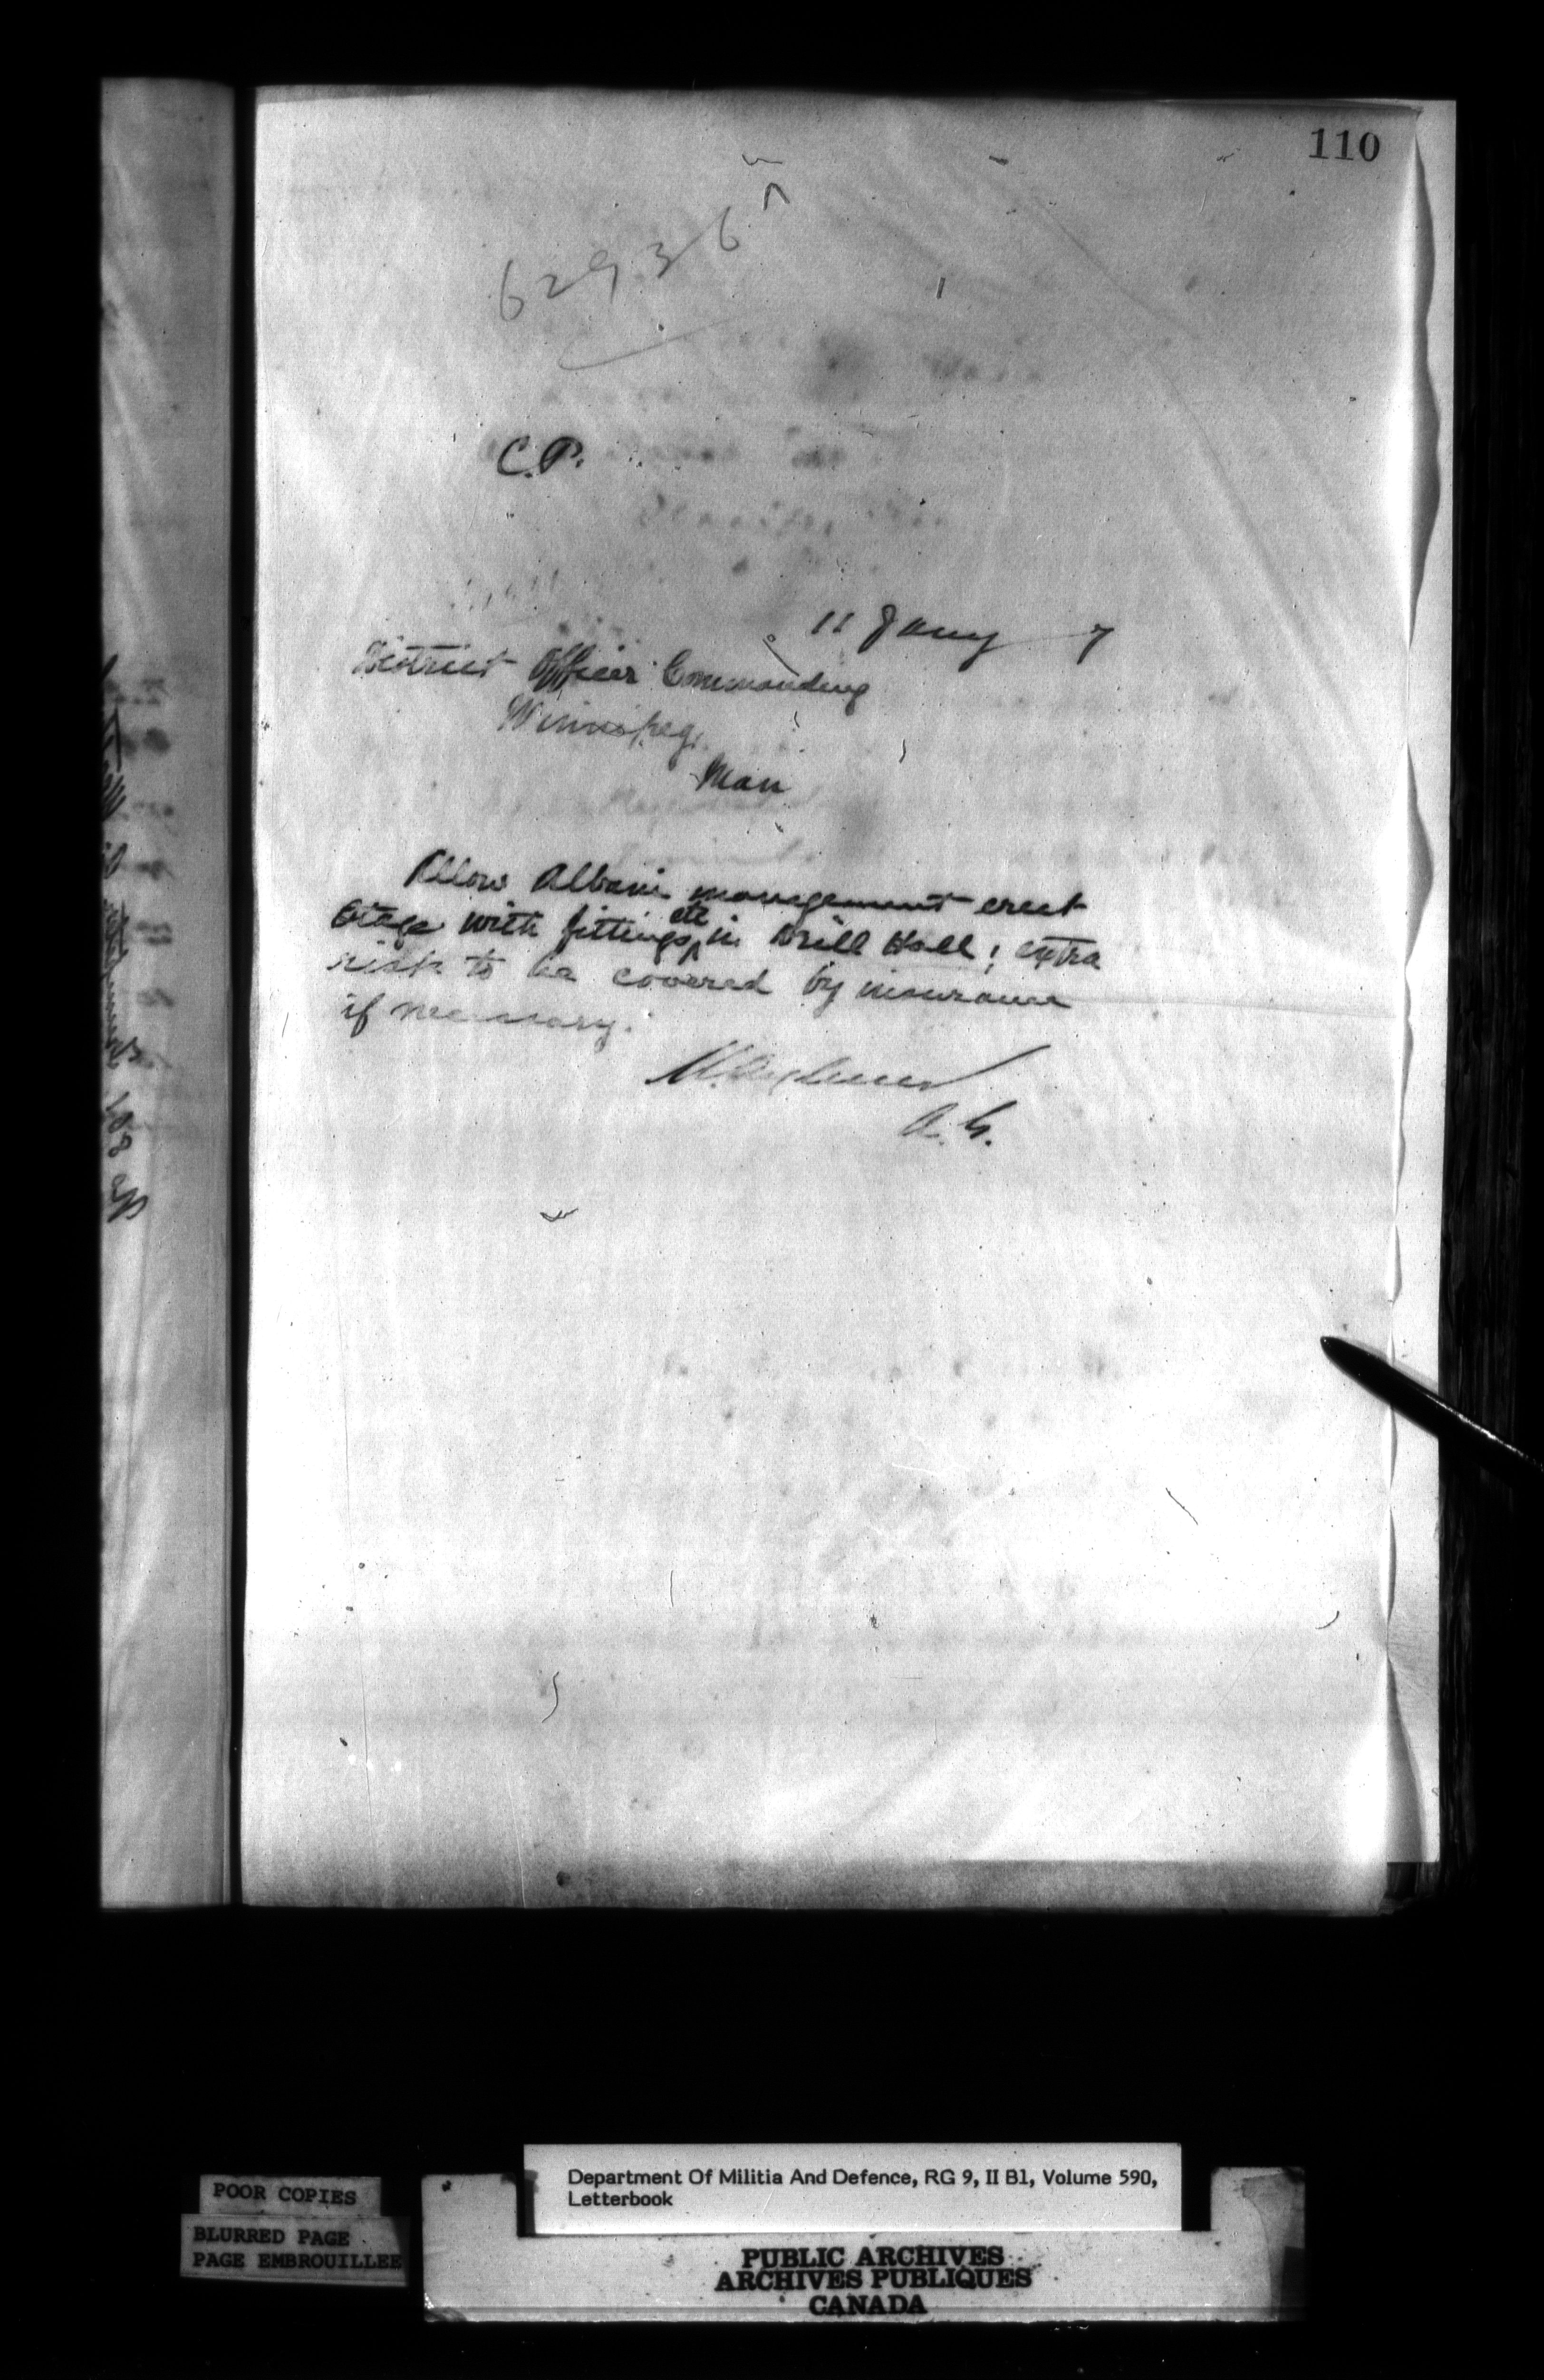 110
62936
C.P.
11 Jany 7
District Officer Commanding
Winnipeg,
Man
Allow Albani management erect
stage with fittings etc in Drill Hall; extra
risk to be covered by insurance
if necessary.
A. G.
POOR COPIES
BLURRED PAGE
PAGE EMBROUILLEE
Department Of Militia And Defence, RG 9, II B1, Volume 590,
Letterbook
PUBLIC ARCHIVES
ARCHIVES PUBLIQUES
CANADA